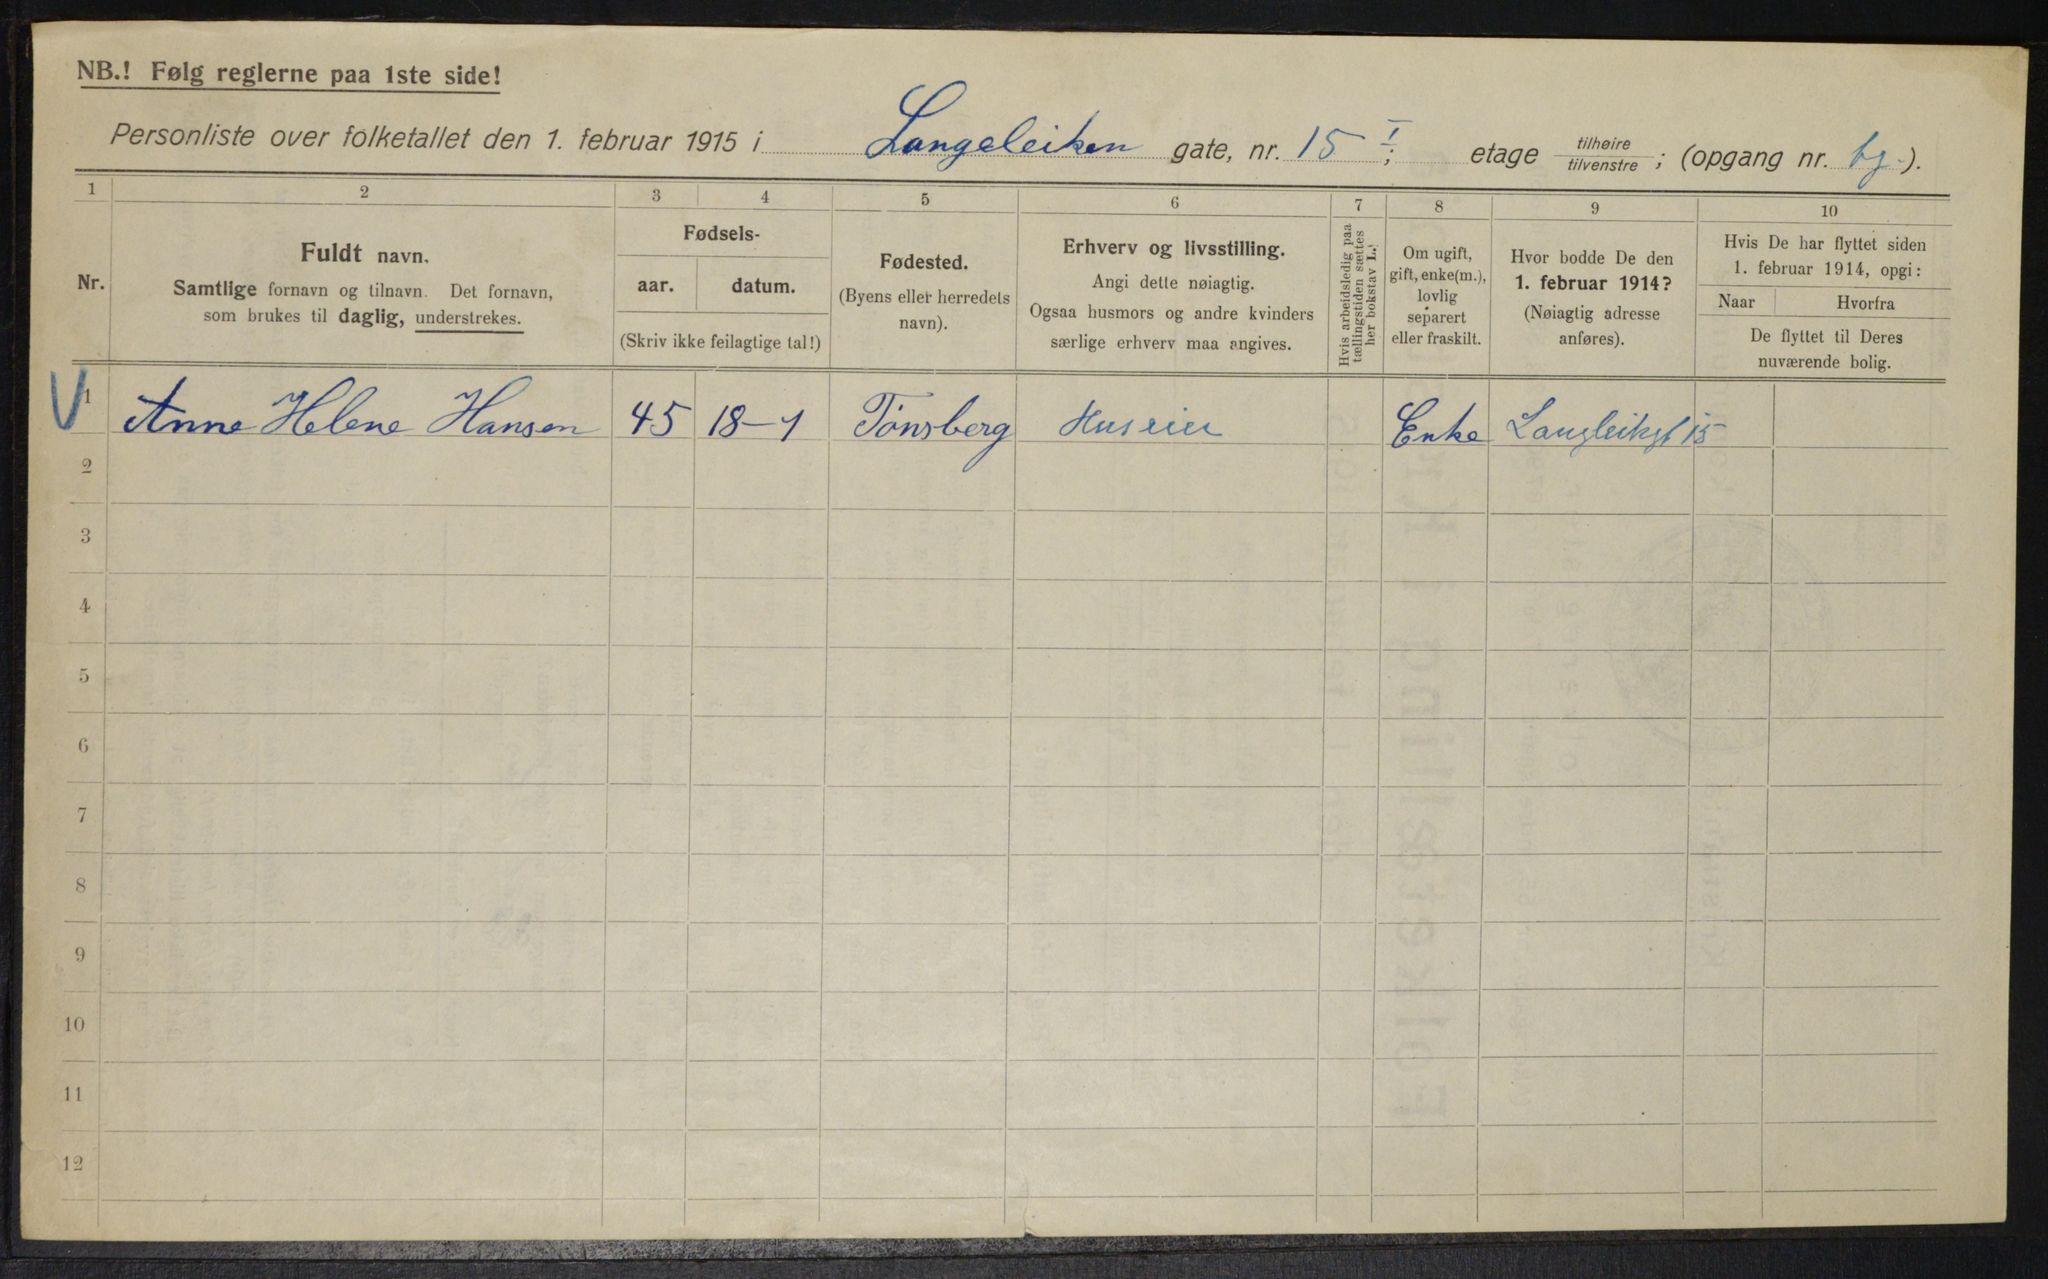 NB.! Følg reglerne paa 1ste side!
Personliste over folketallet den 1. februar 1915 i Langeleiken gate, nr. 15 I; etage tilhøire/tilvenstre; (opgang nr. bg.).
1 2 3 4 5 6 7 8 9 10
Nr.
Fuldt navn.
Samtlige fornavn og tilnavn. Det fornavn,
som brukes til daglig, understrekes.
Fødsels-
aar. datum.
(Skriv ikke feilagtige tal!)
Fødested.
(Byens eller herredets
navn).
Erhverv og livsstilling.
Angi dette nøiagtig.
Ogsaa husmors og andre kvinders
særlige erhverv maa angives.
Hvis arbeidsledig paa
tællingstiden sættes
her bokstav L.!
Om ugift,
gift, enke(m.),
lovlig
separert
eller fraskilt.
Hvor bodde De den
1. februar 1914?
(Nøiagtig adresse
anføres).
Hvis De har flyttet siden
1. februar 1914, opgi:
Naar Hvorfra
De flyttet til Deres
nuværende bolig.
V 1 Anne Helene Hansen 45 18-1 Tönsberg Huseier Enke Langleiksgt 15
2
3
4
5
6
7
8
9
10
11
12